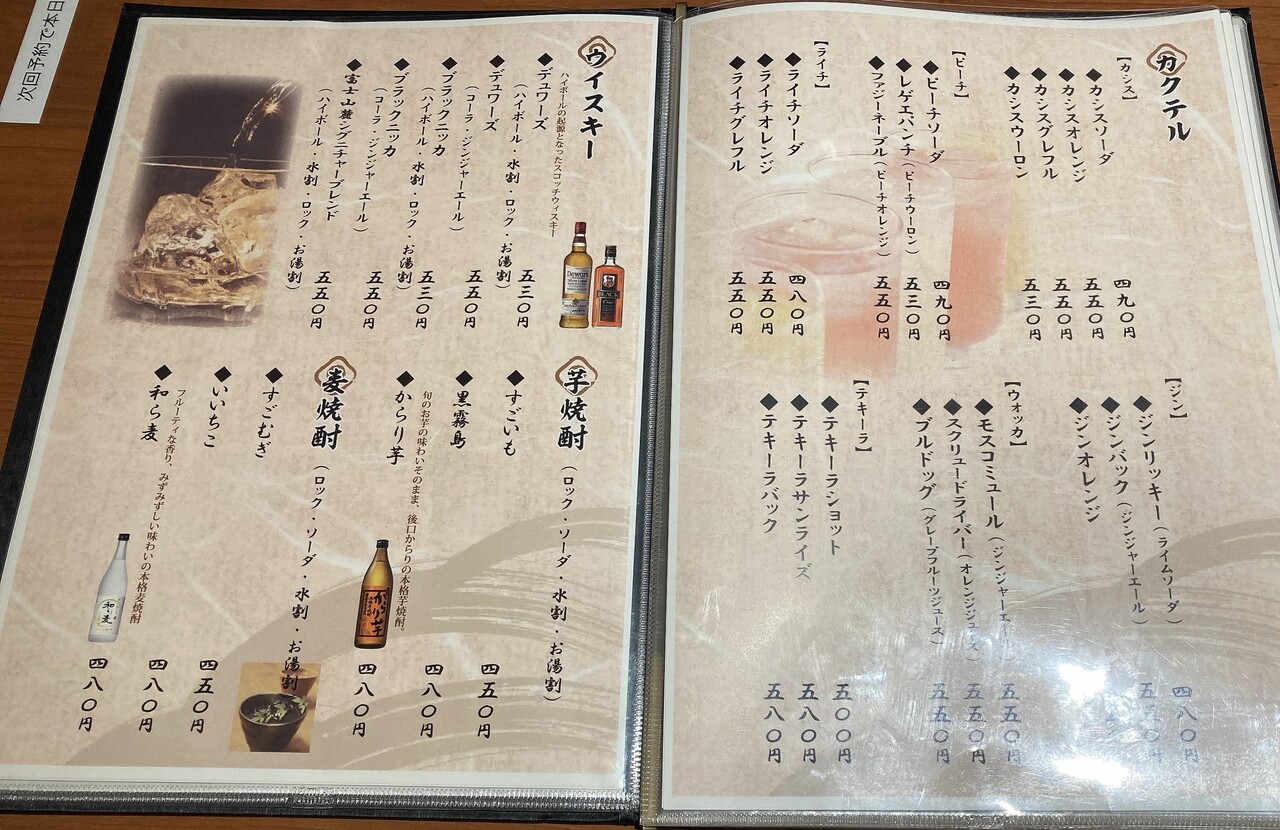 次回予約で本日
カクテル
【カシス】
◆カシスソーダ 四九〇円
◆カシスオレンジ 五五〇円
◆カシスグレフル 五五〇円
◆カシスウーロン 五三〇円
【ピーチ】
◆ピーチソーダ 四九〇円
◆レゲエパンチ（ピーチウーロン） 五三〇円
◆ファジーネーブル（ピーチオレンジ） 五五〇円
【ライチ】
◆ライチソーダ 四八〇円
◆ライチオレンジ 五五〇円
◆ライチグレフル 五五〇円
【ジン】
◆ジンリッキー（ライムソーダ） 四八〇円
◆ジンバック（ジンジャーエール） 五五〇円
◆ジンオレンジ
【ウォッカ】
◆モスコミュール（ジンジャーエール） 五五〇円
◆スクリュードライバー（オレンジジュース） 五五〇円
◆ブルドッグ（グレープフルーツジュース） 五五〇円
【テキーラ】
◆テキーラショット 五〇〇円
◆テキーラサンライズ 五八〇円
◆テキーラバック 五八〇円
ウイスキー
ハイボールの起源となったスコッチウィスキー
◆デュワーズ
（ハイボール・水割・ロック・お湯割） 五三〇円
◆デュワーズ
（コーラ・ジンジャーエール） 五五〇円
◆ブラックニッカ
（ハイボール・水割・ロック・お湯割） 五三〇円
◆ブラックニッカ
（コーラ・ジンジャーエール） 五五〇円
◆富士山麓シグニチャーブレンド
（ハイボール・水割・ロック・お湯割） 五五〇円
Dewar's
BLACK
芋焼酎（ロック・ソーダ・水割・お湯割）
◆すごいも 四五〇円
◆黒霧島 四八〇円
◆からり芋 四八〇円
旬のお芋の味わいそのまま、後口からりの本格芋焼酎。
からり芋
麦焼酎（ロック・ソーダ・水割・お湯割）
◆すごむぎ 四五〇円
◆いいちこ 四八〇円
◆和ら麦 四八〇円
フルーティな香り、みずみずしい味わいの本格麦焼酎
和ら麦